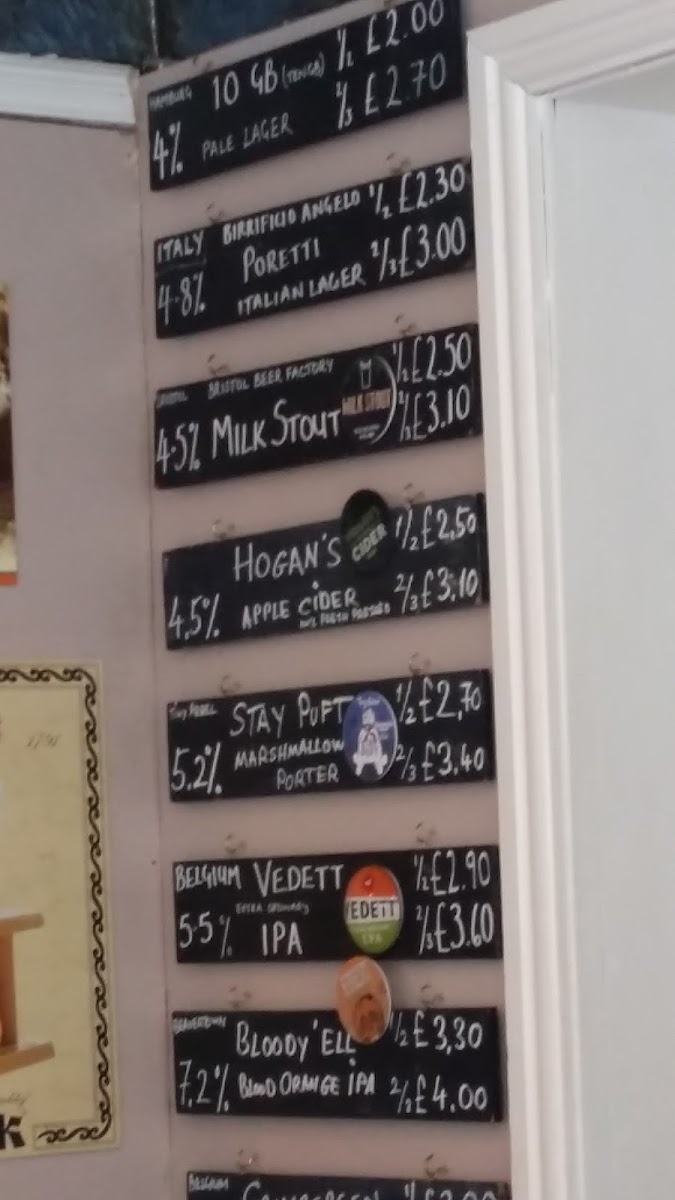 HAMBURG 10 GB (TENGB) 1/2 £2.00
4% PALE LAGER 2/3 £2.70
ITALY BIRRIFICIO ANGELO 1/2 £2.30
PORETTI
4.8% ITALIAN LAGER 2/3 £3.00
BRISTOL BRISTOL BEER FACTORY 1/2 £2.50
4.5% MILK STOUT MILK STOUT 2/3 £3.10
HOGAN'S CIDER 1/2 £2,50
4.5% APPLE CIDER 2/3 £3.10
TINY REBEL STAY PUFT 1/2 £2,70
5.2% MARSHMALLOW
PORTER 2/3 £3.40
BELGIUM VEDETT 1/2 £2.90
EXTRA ORDINARY VEDETT
5.5% IPA IPA 2/3 £3.60
BEAVERTOWN BLOODY 'ELL 1/2 £3,30
7.2% BLOOD ORANGE IPA 2/3 £4.00
BELGIUM
k